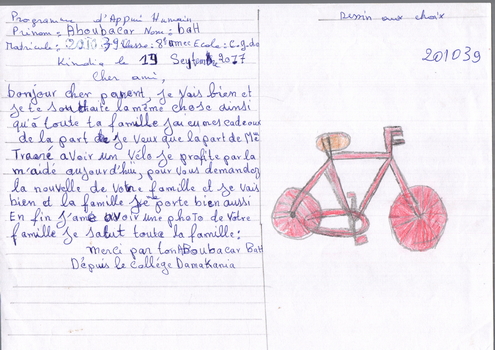 Programme d'Appui Humain
Prénom: Aboubacar Nom: baH
Matricule: 201039 Classe: 8e année Ecole: C.g.do
Kindia le 19 Septemb 2017
Cher ami,
bonjour cher parent, je vais bien et
je te souhaite la même chose ainsi
qu'à toute ta famille j'ai eu mes cadeaux
de la part de je veux que la part de Mr
Traoré avoir un vélo je profite par la
m'aidé aujourd'hui, pour vous demander
la nouvelle de votre famille et je vais
bien et la famille se porte bien aussi
En fin j'ame avoir une photo de votre
famille je salut toute la famille:
Merci par ton Aboubacar BaH
Dépuis le collège Damakania
Dessin aux choix
201039